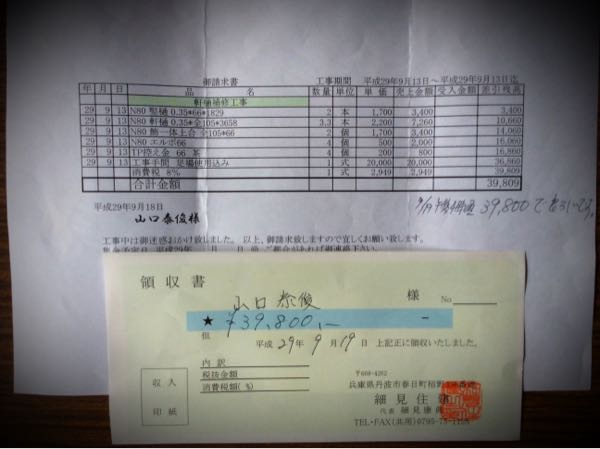 御請求書 工事期間 平成29年9月13日～平成29年9月13日迄
年 月 日 品 名 数量 単位 単価 売上金額 受入金額 差引残高
軒樋補修工事
29 9 13 N80 竪樋 0.35*66*1829 2 本 1,700 3,400 3,400
29 9 13 N80 軒樋 0.35*全105*3658 3.3 本 2,200 7,260 10,660
29 9 13 N80 飾一体上合 全105*66 2 個 1,700 3,400 14,060
29 9 13 N80 エルボ66 4 個 500 2,000 16,060
29 9 13 TP控え金 66 茶 4 個 200 800 16,860
29 9 13 工事手間 足場使用込み 1 式 20,000 20,000 36,860
消費税 8% 1 式 2,949 2,949 39,809
合計金額 39,809
平成29年9月18日
山口泰俊様
39,800で
工事中は御迷惑おかけ致しました。 以上、御請求致しますので宜しくお願い致します。
領収書
山口泰俊 様 No
★ ¥39,800,-
但 平成 29年 9月 19日 上記正に領収いたしました。
内訳
税抜金額
消費税額(%)
収入
印紙
〒669-4252
兵庫県丹波市春日町
細見住
代表 細見
TEL・FAX(共用)0795-75-